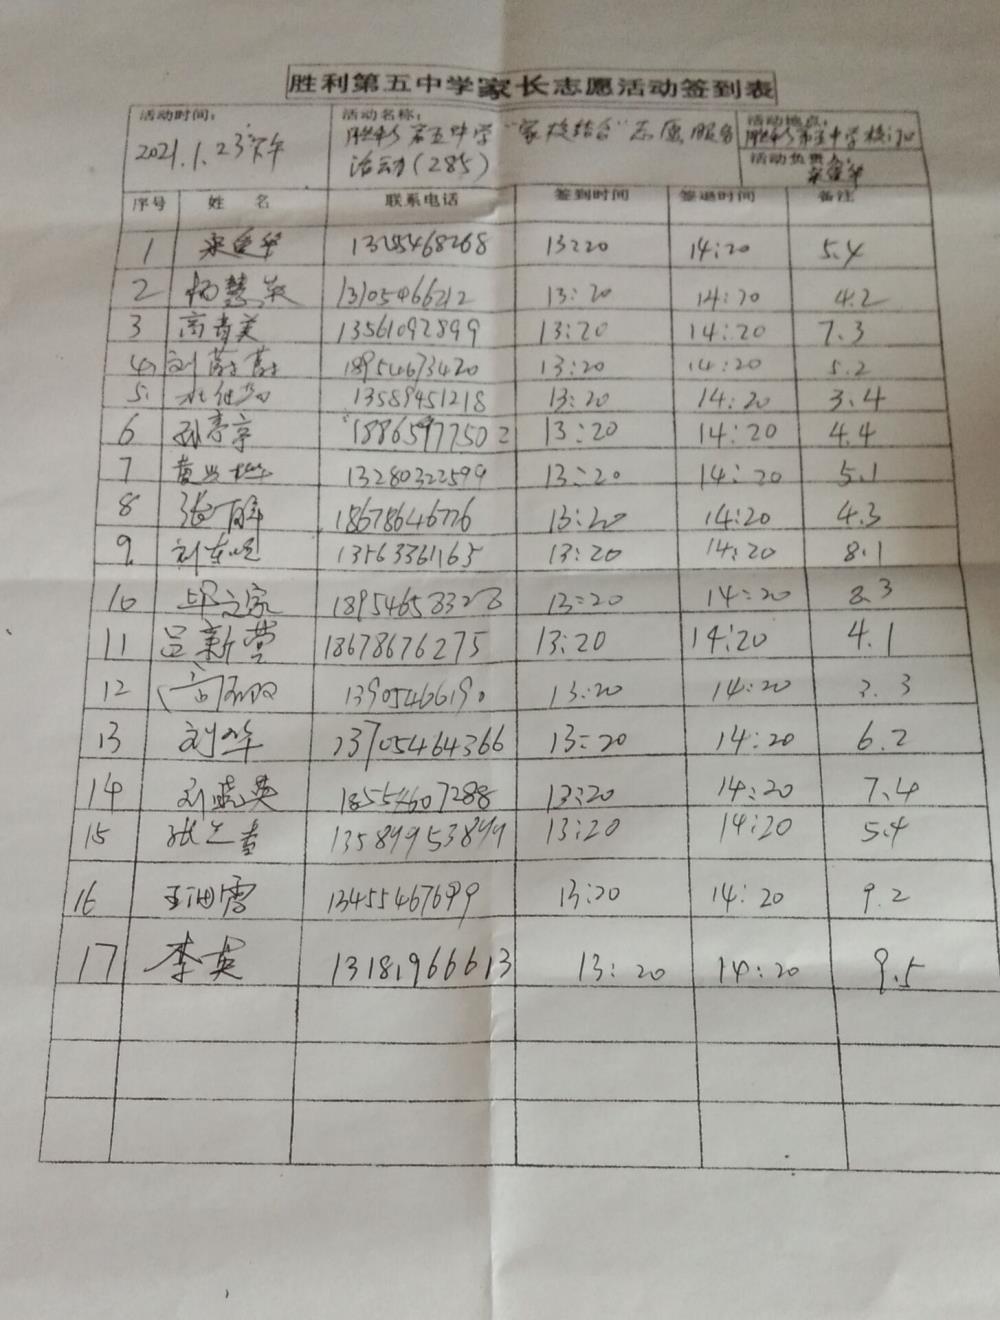 胜利第五中学家长志愿活动签到表
活动时间: 活动名称: 活动地点:
2021.1.23下午 胜利第五中学"家校结合"志愿服务 胜利第五中学校门口
活动(285) 活动负责人:
序号 姓 名 联系电话 签到时间 签退时间 备注
1 13255468268 13:20 14:20 5.4
2 杨慧英 13105466212 13:20 14:20 4.2
3 高青美 13561092899 13:20 14:20 7.3
4 刘 18954673420 13:20 14:20 5.2
5 13589451218 13:20 14:20 3.4
6 孙亭亭 18865977502 13:20 14:20 4.4
7 黄兴 13280322599 13:20 14:20 5.1
8 张 18678646776 13:20 14:20 4.3
9 刘东 13563361165 13:20 14:20 8.1
10 18954658328 13:20 14:20 8.3
11 吕新营 18678676275 13:20 14:20 4.1
12 高 13905466190 13:20 14:20 3.3
13 刘华 13705464366 13:20 14:20 6.2
14 刘英 18554607288 13:20 14:20 7.4
15 张 13589953899 13:20 14:20 5.4
16 王雪 13455467699 13:20 14:20 9.2
17 李英 13181966613 13:20 14:20 9.5